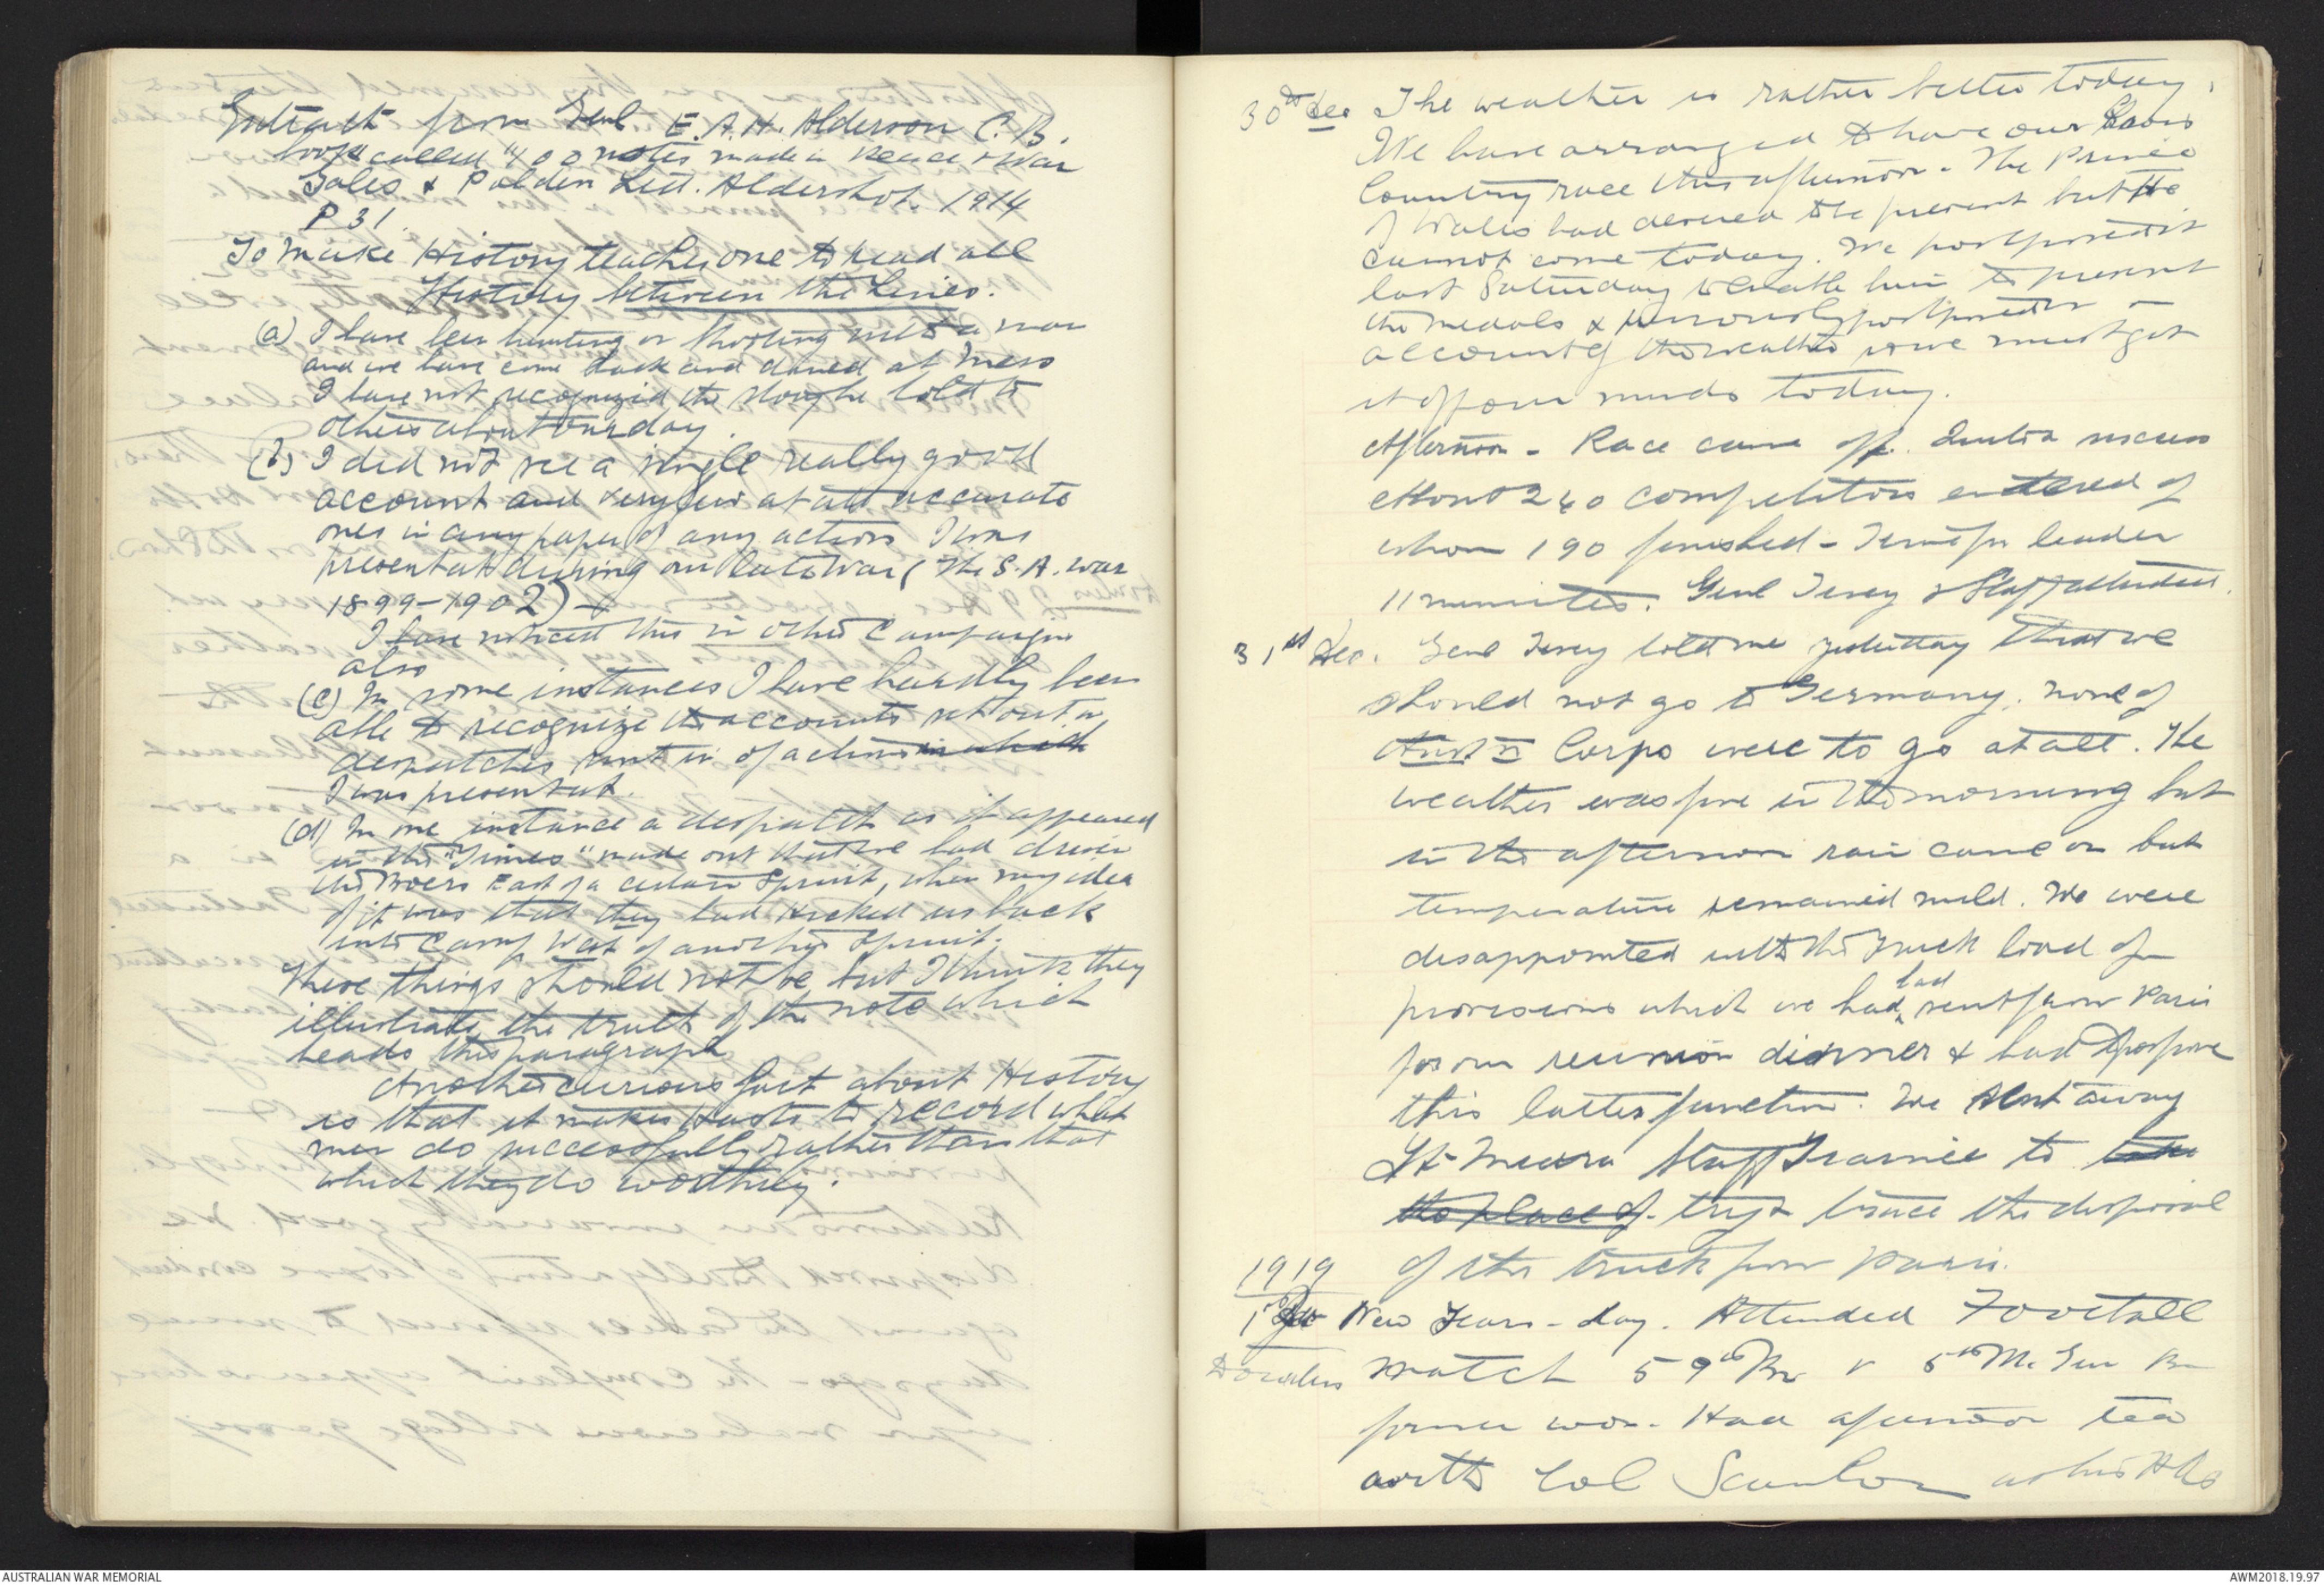 Extract from Genl E.A.H. Alderson C.B.
book called "400 notes made in Peace & War
Gales & Polden Ltd. Aldershot. 1914
P 31.
To make History teaches one to read all
History between the Lines.
(a) I have been hunting or shooting with a man
and we have come back and dined at Mess
I have not recognized the story he told to
others about our day.
(b) I did not see a single really good
account and very few at all accurate
ones in any paper of any action I was
present at during our late War (The S.A. war
1899-1902) -
I have noticed this in other Campaigns
also
(c) In some instances I have hardly been
able to recognize the accounts set out in
despatches sent in of actions in which
I was present at.
(d) In one instance a despatch as it appeared
in the "Times" made out that we had driven
the Boers East of a certain Spruit, when my idea
of it was that they had kicked us back
into Camp West of another Spruit.
These things should not be but I think they
illustrate the truth of the note which
heads this paragraph
Another curious fact about History
is that it makes haste to record what
men do successfully rather than that
which they do worthily.
30th Dec The weather is rather better today.
We have arranged to have our Cross
Country race this afternoon - The Prince
of Wales had desired to be present but He
cannot come today. We postponed it
last Saturday to enable him to present
the medals & previously postponed it on
account of the weather so we must get
it off our minds today.
Afternoon - Race came off. Quite a success
About 240 competitors entered of
whom 190 finished - Time for leader
11 minutes. Genl Tivey & Staff attended.
31st Dec. Genl Tivey told me yesterday that we
should not go to Germany. none of
Aust Corps were to go at all. The
weather was fine in the morning but
in the afternoon rain came on but
temperature remained mild. We were
disappointed with the truck load of
provisions which we had had sent from Paris
for our reunion dinner & had to postpone
this latter function. We sent away
Lt Meara Staff Trainee to take
the place of try & trace the disposal
of the truck from Paris.
1919
1st Jan New Years-day. Attended Football
Dourlers match 59th Bn v 5th M. Gun Bn
former won. Had afternoon tea
with Col Scanlan at his HQs
AUSTRALIAN WAR MEMORIAL
AWM2018.19.97